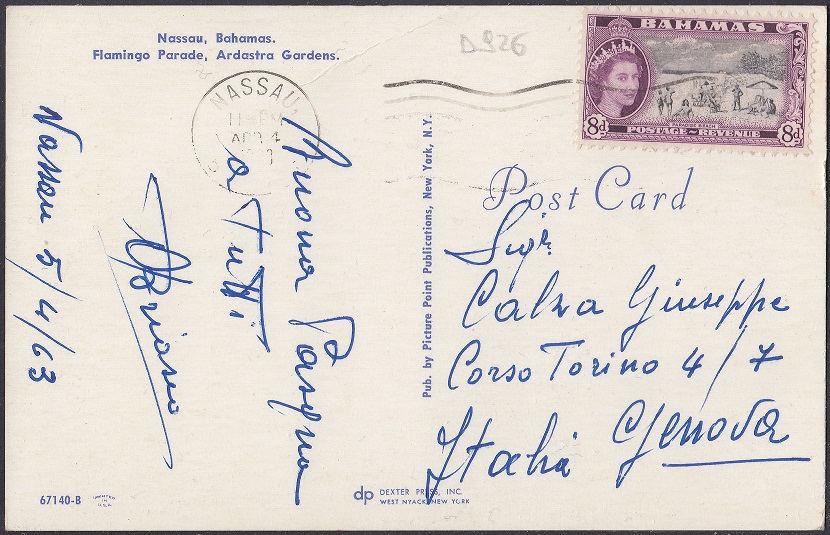 Nassau, Bahamas.
Flamingo Parade, Ardastra Gardens.
D926
BAHAMAS
8d
PARADISE BEACH
8d
POSTAGE~REVENUE
NASSAU.
APR 4
Nassau 5/4/63
Buona Pasqua
a Tutti
Pub. by Picture Point Publications, New York, N.Y.
Post Card
Sigr
Calva Giuseppe
Corso Torino 4/7
Genova
Italia
67140-B
PRINTED
IN
U.S.A.
dp DEXTER PRESS, INC.
WEST NYACK, NEW YORK